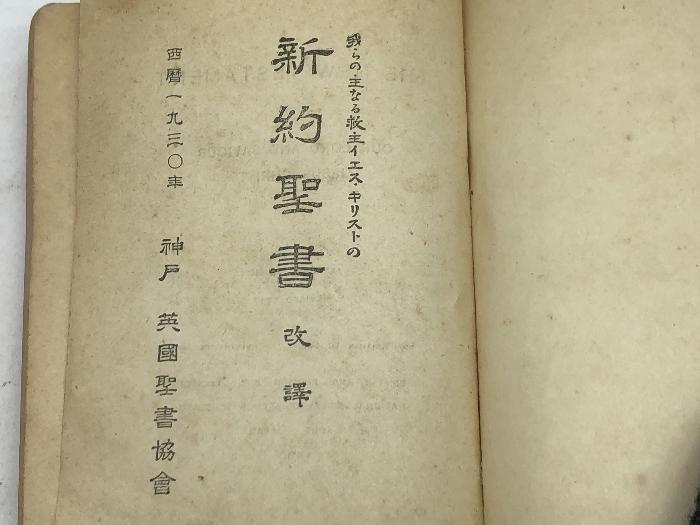 我らの主なる救主イエス・キリストの
新約聖書 改譯
西曆一九三〇年 神戸 英國聖書協會